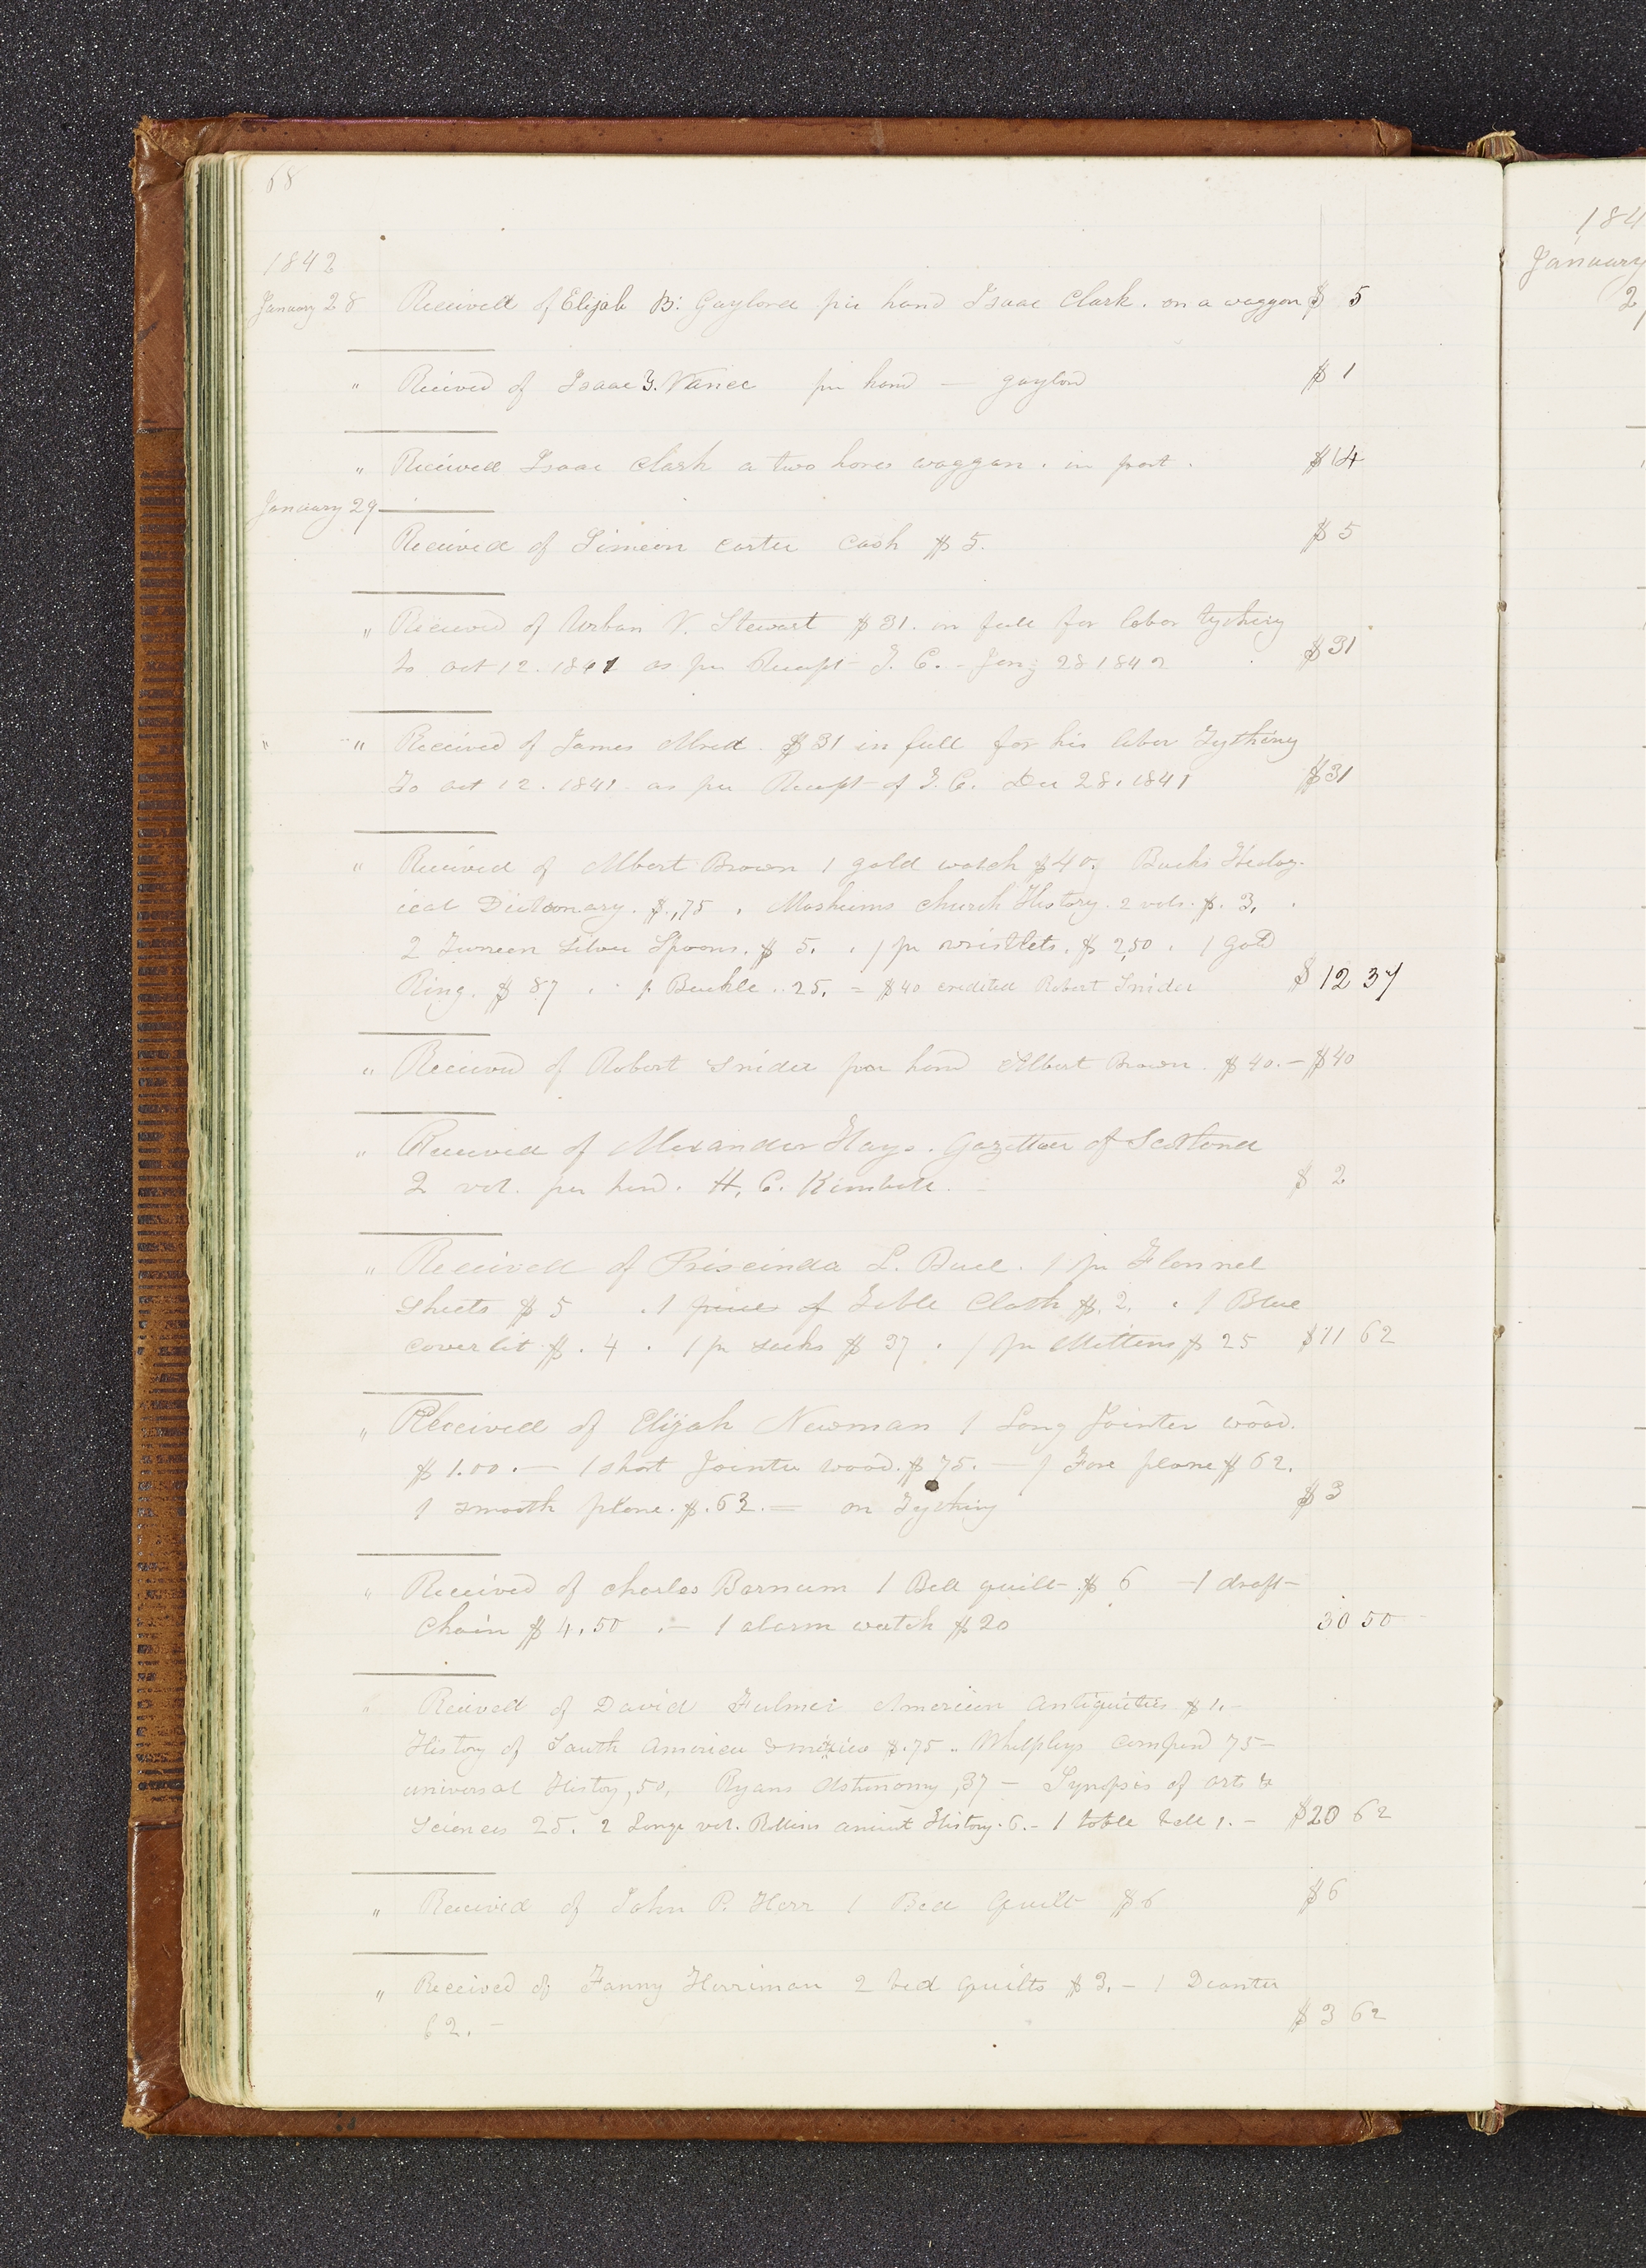 68
1842
January 28 Received of Elijah B. Gaylord per hand Isaac Clark. on a waggon $ 5
" Received of Isaac Y. Vance per hand — gaylord $ 1
" Received Isaac Clark a two hores waggan. in part. $14
January 29
Received of Simeon Carter Cash $5. $5
" Received of Urban V. Stewart $31. in full for labor tything
To oct 12. 1841 as per Receipt J. C. - Jany 28 1842 $31
" " Received of James Alred. $31 in full for his labor Tything
To oct 12. 1841 as per Receipt of J. C. Dec 28. 1841 $31
" Received of Albert Brown 1 gold watch $40, Bucks Theolog-
ical Dictonary. $.,75. Mosheims Church History. 2 vols. $. 3,
2 Silver Spoons. $ 5. . 1 pr wristlets. $ 2,50. 1 gold
Ring. $ 87 . . 1 Buckle . . 25. = $40 credited Robert Snider $ 12 37
" Received of Robert Snider per hand Albert Brown. $40. — $40
" Received of Alexander Hays. Gazetteer of Scotland
2 vol. per hand. H. C. Kimball. $ 2
" Received of Priscinda L. Buel. 1 pr Flannel
Sheets $ 5 . 1 piece of Table Cloth $. 2. . 1 Blue
coverlit $. 4 . 1 pr socks $ 37 . 1 pr Mittens $ 25 $11 62
" Received of Elijah Newman 1 Long Jointer wood.
$ 1.00. — 1 short Jointer wood. $ 75. — 1 Fore plane $ 62.
1 smooth plane. $. 63. = on Tything $ 3
" Received of Charles Barnum 1 Bed quilt $ 6 — 1 draft
Chain $ 4.50 . — 1 alarm watch $20 30 50
" Reeived of David Fulmer American antiquities $1. —
History of South America & mexico $.75. Whelpleys compend 75 —
universal History, 50, Ryans Astronomy, 37 — Synopsis of arts &
Sciences 25. 2 Large vol. Rollins ancient History. 6. — 1 table 1. — $20 62
" Received of John P. Herr 1 Bed Quilt $6 $6
" Received of Fanny Herriman 2 bed quilts $ 3. — 1 Decanter
62. — $ 3 62
184
January
2